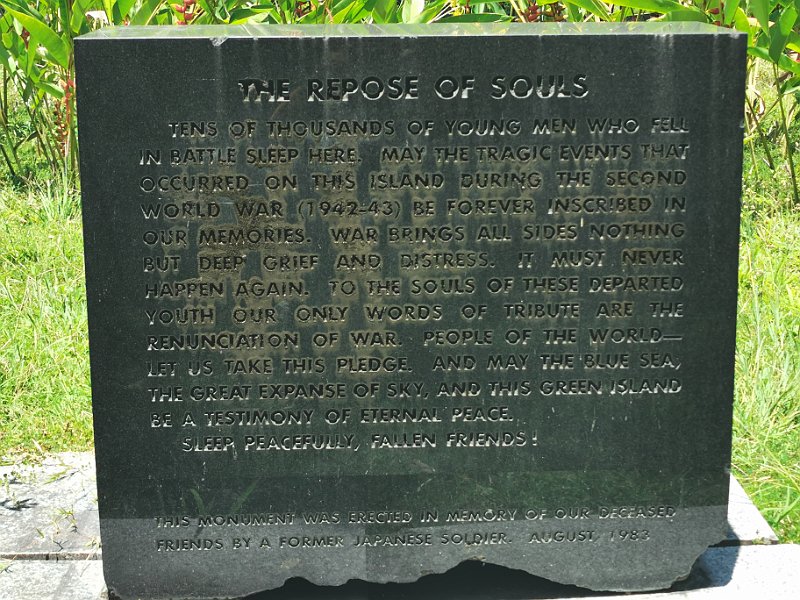 THE REPOSE OF SOULS
TENS OF THOUSANDS OF YOUNG MEN WHO FELL
IN BATTLE SLEEP HERE. MAY THE TRAGIC EVENTS THAT
OCCURRED ON THIS ISLAND DURING THE SECOND
WORLD WAR (1942-43) BE FOREVER INSCRIBED IN
OUR MEMORIES. WAR BRINGS ALL SIDES NOTHING
BUT DEEP GRIEF AND DISTRESS. IT MUST NEVER
HAPPEN AGAIN. TO THE SOULS OF THESE DEPARTED
YOUTH OUR ONLY WORDS OF TRIBUTE ARE THE
RENUNCIATION OF WAR. PEOPLE OF THE WORLD—
LET US TAKE THIS PLEDGE. AND MAY THE BLUE SEA,
THE GREAT EXPANSE OF SKY, AND THIS GREEN ISLAND
BE A TESTIMONY OF ETERNAL PEACE.
SLEEP PEACEFULLY, FALLEN FRIENDS!
THIS MONUMENT WAS ERECTED IN MEMORY OF OUR DECEASED
FRIENDS BY A FORMER JAPANESE SOLDIER. AUGUST, 1983